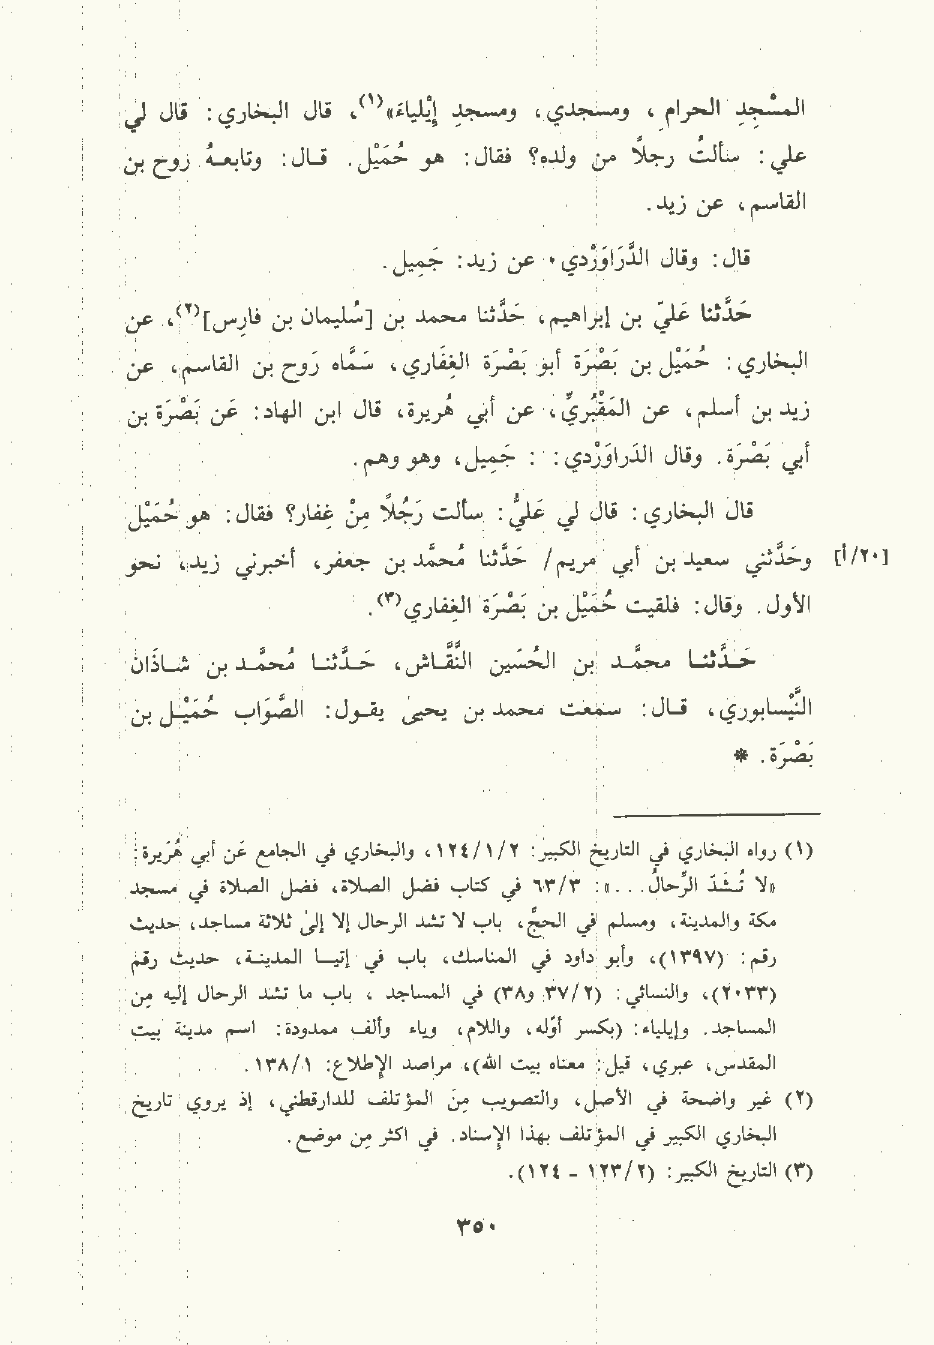 المسْجِدِ الحرامِ، ومسجدي، ومسجدِ إيْلياءَ»(١)، قال البخاري: قال لي
علي: سألتُ رجلاً من ولده؟ فقال: هو حُمَيْل. قـال: وتابعـهُ روح بن
القاسم، عن زيد.
قال: وقال الدَّرَاوَرْدي، عن زيد: جَمِيل.
حَدَّثنا عَليّ بن إبراهيم، حَدَّثنا محمد بن [سُليمان بن فارِس](٢)، عن
البخاري: حُمَيْل بن بَصْرَة أبو بَصْرَة الغِفَاري، سَمَّاه رَوح بن القاسم، عن
زيد بن أسلم، عن المَقْبُريِّ، عن أبي هُريرة، قال ابن الهاد: عَن بَصْرَة بن
أبي بَصْرَة. وقال الدَراوَرْدي: : جَمِيل، وهو وهم.
قال البخاري: قال لي عَليُّ: سألت رَجُلاً مِنْ غِفار؟ فقال: هو حُمَيْل
[٢٠/أ] وحَدَّثني سعيد بن أبي مريم/ حَدَّثنا مُحمَّد بن جعفر، أخبرني زيد، نحو
الأول. وقال: فلقيت حُمَيْل بن بَصْرَة الغِفاري(٣).
حَـدَّثنـا محمَّـد بن الحُسَين النَّقَّـاش، حَـدَّثنـا مُحمَّـد بن شـاذَان
النَّيْسابوري، قـال: سمعت محمد بن يحيىٰ يقـول: الصَّوَاب حُمَيْـل بن
بَصْرَة. *
(١) رواه البخاري في التاريخ الكبير: ١٢٤/١/٢، والبخاري في الجامع عَن أبي هُرَيرة:
«لا تُـشَـدّ الرِّحالُ...»: ٦٣/٣ في كتاب فضل الصلاة، فضل الصلاة في مسجد
مكة والمدينة، ومسلم في الحجِّ، باب لا تشد الرحال إلا إلىٰ ثلاثة مساجد، حديث
رقم: (١٣٩٧)، وأبو داود في المناسك، باب في إتيـان المدينـة، حديث رقم
(٢٠٣٣)، والنسائي: (٣٧/٢ و٣٨) في المساجد، باب ما تشد الرحال إليه مِن
المساجد. وإيلياء: (بكسر أوّله، واللام، وياء وألف ممدودة: اسم مدينة بيت
المقدس، عبري، قيل: معناه بيت الله)، مراصد الإطلاع: ١٣٨/١.
(٢) غير واضحة في الأصل، والتصويب مِنَ المؤتلف للدارقطني، إذ يروي تاريخ
البخاري الكبير في المؤتلف بهذا الإسناد. في اكثر مِن موضع.
(٣) التاريخ الكبير: (١٢٣/٢ - ١٢٤).
٣٥٠